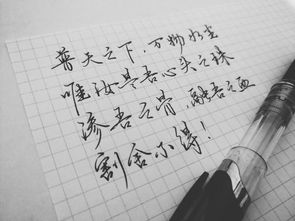 普天之下,万物如尘
唯汝是吾心头之珠
渗吾之骨,融吾之血
割舍不得!